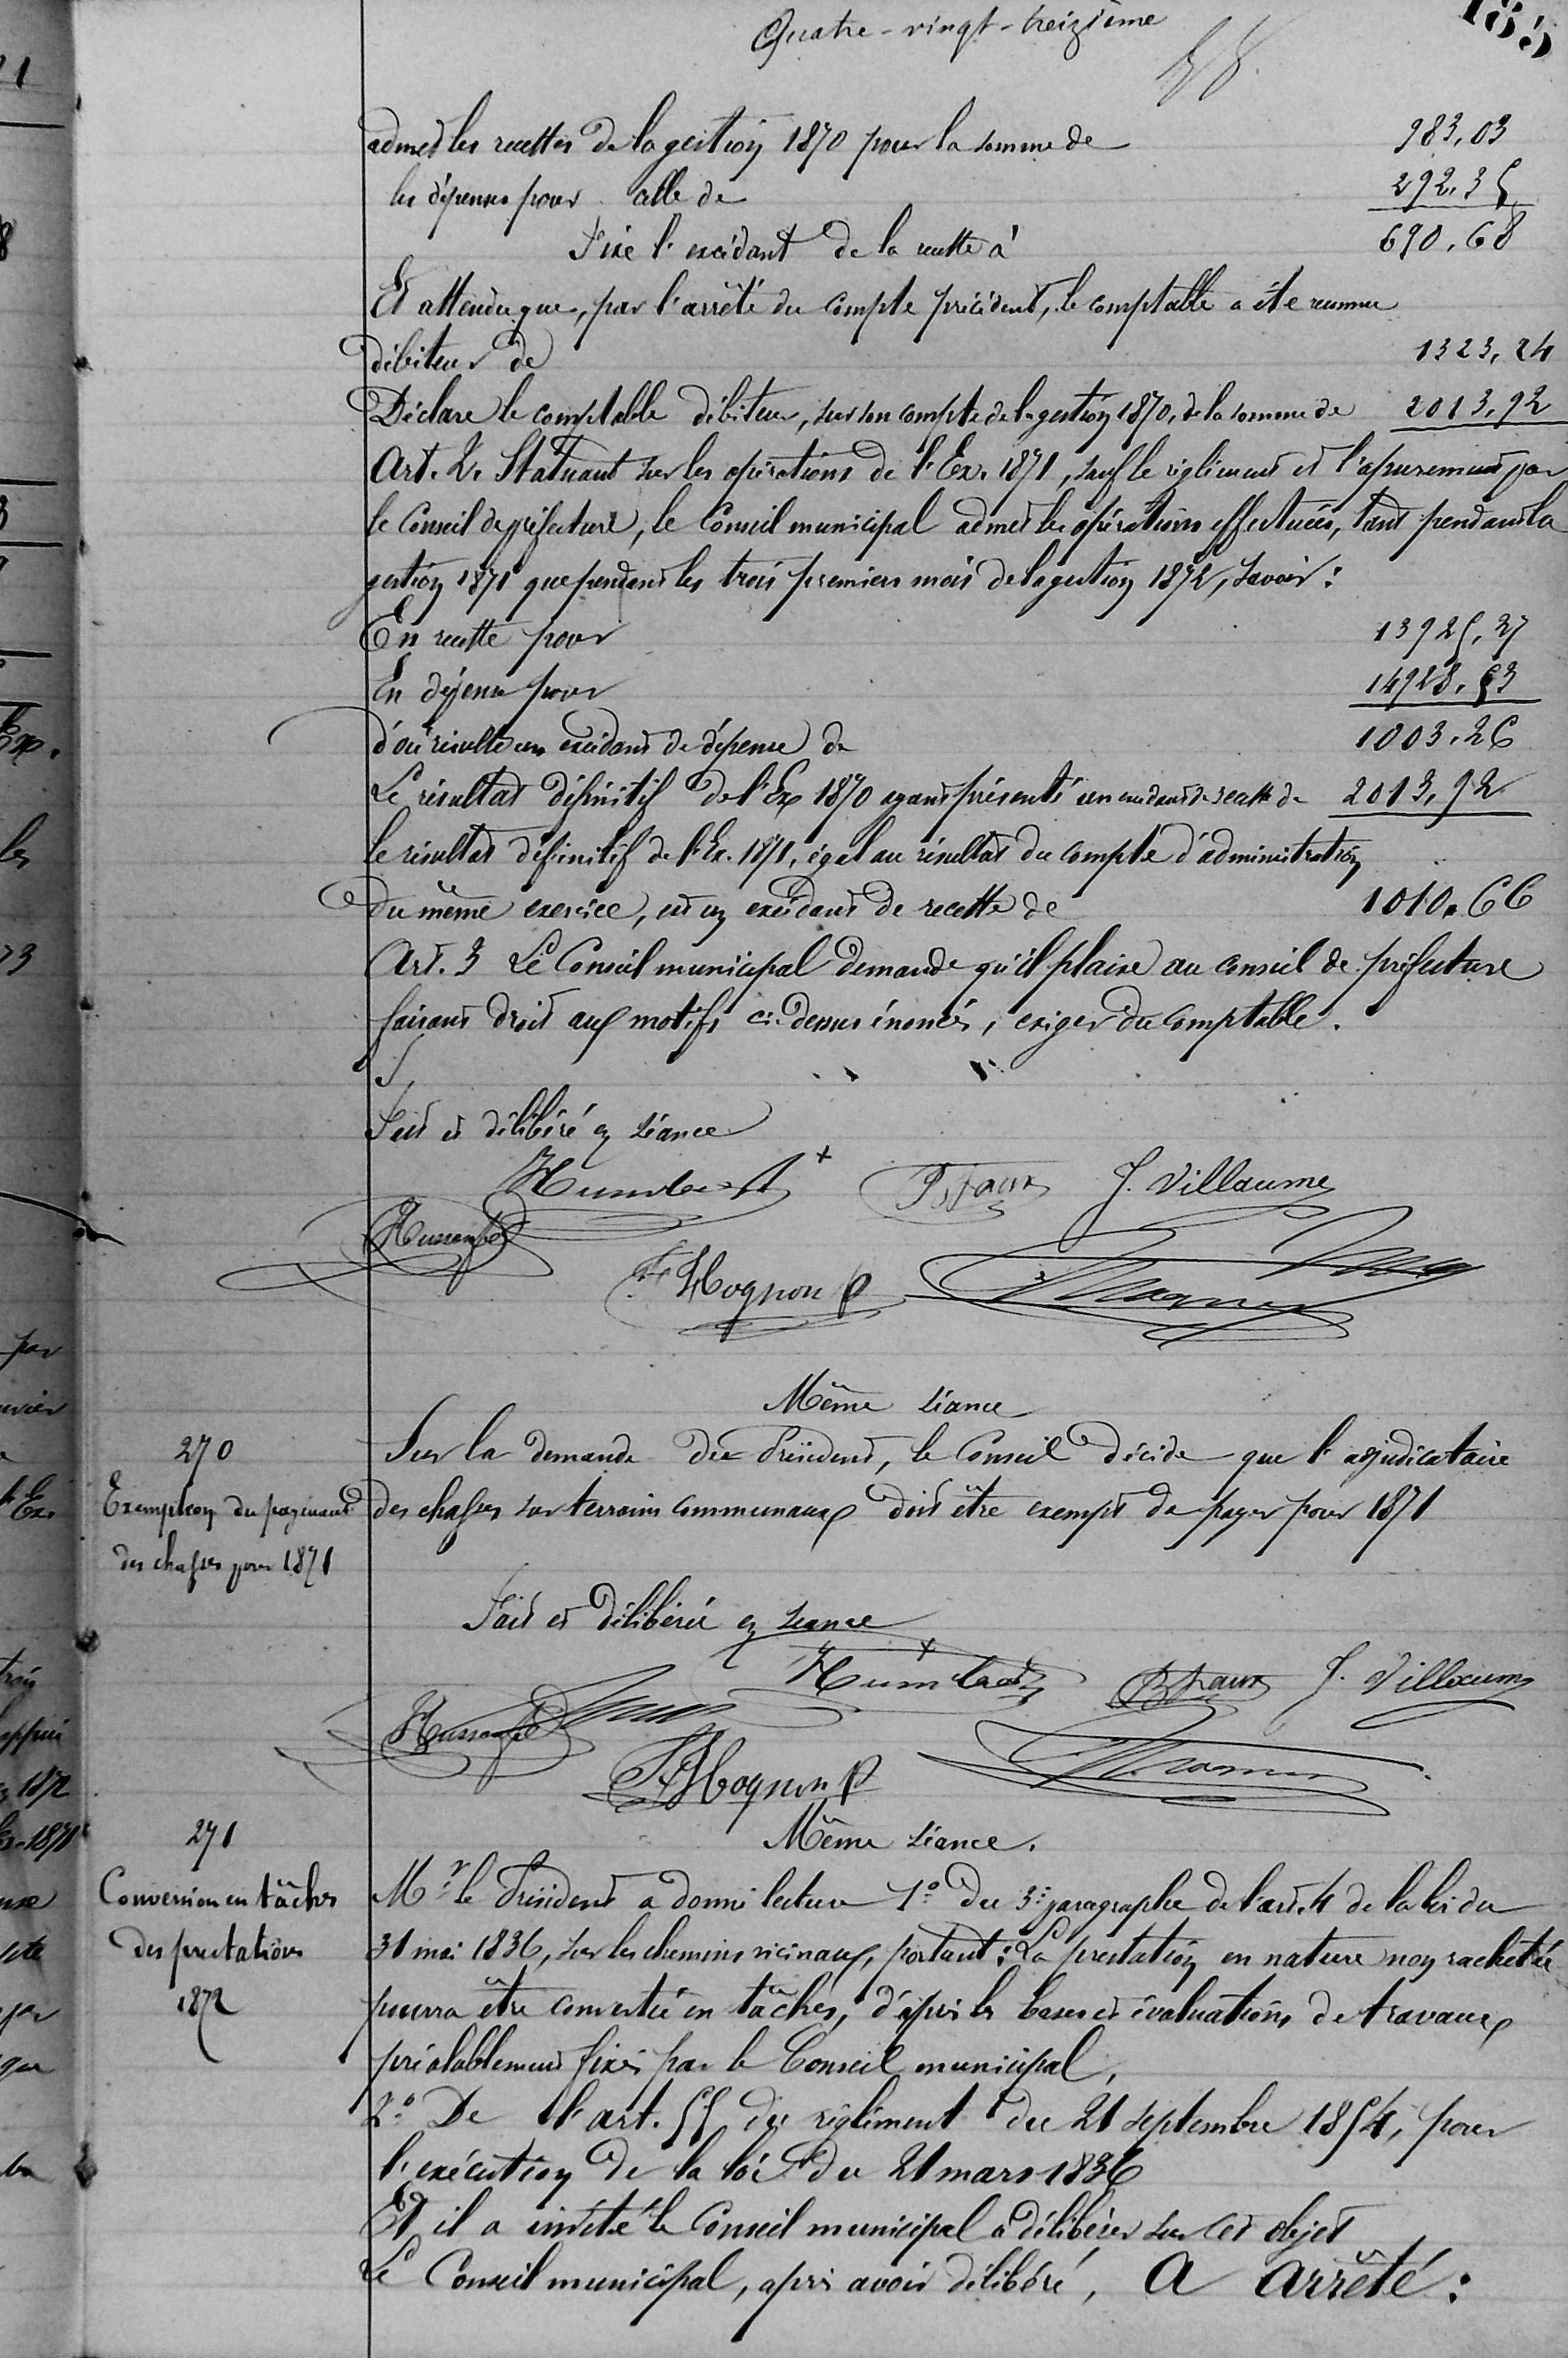 Quatre-vingt-treizième
185
admet les recettes de la gestion 1870 pour la somme de 983,03
les dépenses pour celle de 292.35
Fixe l'excédant de la recette à 690.68
Et attendu que, par l'arrêté du compte précédent, le comptable a été reconnu
débiteur de 1323,24
Déclare le comptable débiteur, sur son compte de la gestion 1870, de la somme de 2013,92
Art. 2. Statuant sur les opérations de l'Ex. 1871, sauf le règlement et l'apurement par
le Conseil de préfecture, le Conseil municipal admet les opérations effectuées, tant pendant la
gestion 1871 que pendant les trois premiers mois de la gestion 1872, savoir:
En recette pour 13925,27
En dépense pour 14928.53
d'où résulte un excédant de dépense de 1003.26
Le résultat définitif de l'Ex 1870 ayant présenté un excédant de recette de 2013,92
le résultat définitif de l'Ex. 1871, égal au résultat du compte d'administration
du même exercice, est un excédant de recette de 1010.66
Art. 3 Le Conseil municipal demande qu'il plaise au conseil de préfecture
faisant droit aux motifs ci-dessus énoncés, exiger du comptable.
Fait et délibéré en séance
Humbert Bstaux J. Villaume
Hussenet
Hognon
Même séance
270
Exemption du payement
des chasses pour 1871
Sur la demande du Président, le Conseil décide que l'adjudicataire
des chasses sur terrains communaux doit être exempt de payer pour 1871
Fait et délibéré en séance
Humbert Bstaux J. Villaume
Hussenet
Hognon
Même séance.
271
Conversion en tâches
des prestations
1872
Mr. le Président a donné lecture 1º du 3e paragraphe de l'art. 4 de la loi du
31 mai 1836, sur les chemins vicinaux, portant: La prestation en nature non rachetée
pourra être convertie en tâches, d'après les bases et évaluations de travaux
préalablement fixés par le Conseil municipal,
2º De l'art. 55 du règlement du 21 septembre 1854, pour
l'exécution de la loi du 21 mars 1836
Et il a invité le Conseil municipal à délibérer sur cet objet
Le Conseil municipal, après avoir délibéré, a arrêté: